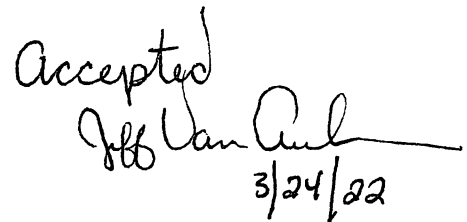 Accepted
Jeff Van
3/24/22